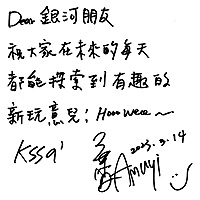 Dear 銀河朋友
祝大家在未來的每天
都能探索到有趣的
新玩意兒！Hooo Weee~
KSSA'
2023.3.14
Amuyi